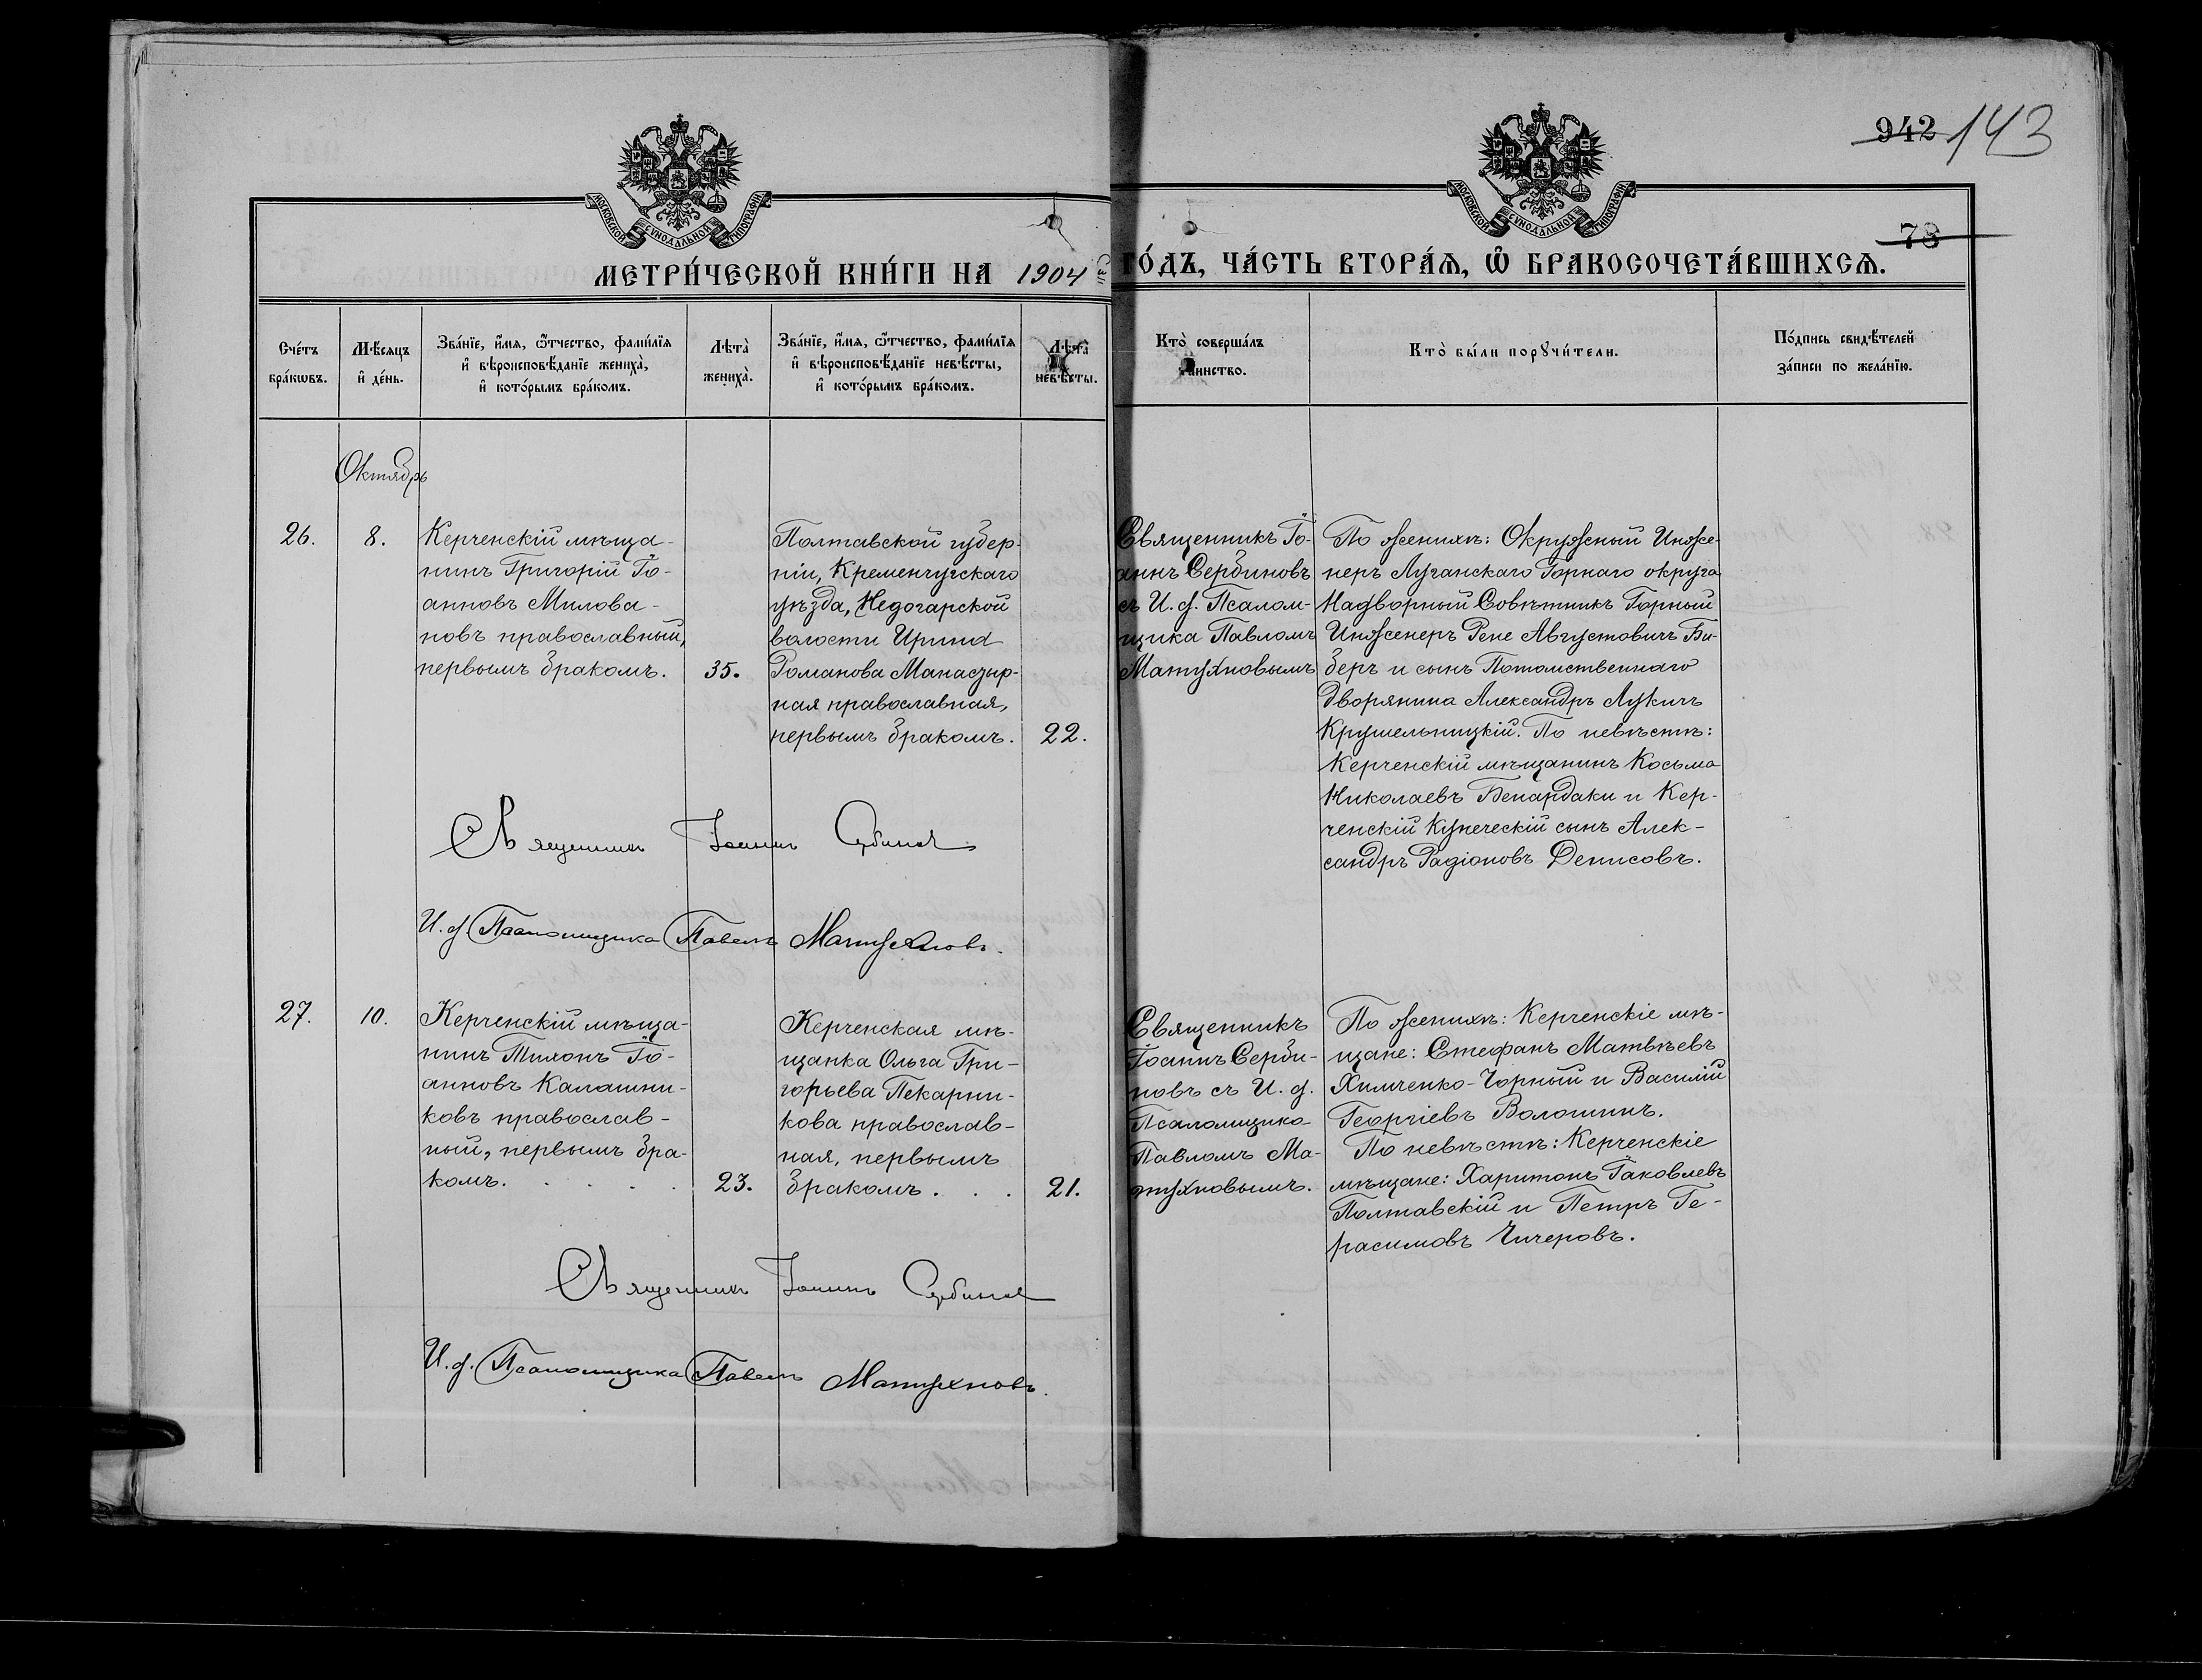 942 143
78
МОСКОВСКОЙ СѴНОДАЛЬНОЙ ТИПОГРАФІИ
МОСКОВСКОЙ СѴНОДАЛЬНОЙ ТИПОГРАФІИ
МЕТРИ́ЧЕСКОЙ КНИ́ГИ НА 1904 ГО́ДЪ, ЧА́СТЬ ВТОРА́Ѧ, Ѽ БРАКОСОЧЕТА́ВШИХСѦ.
Сче́тъ
бра́кѡвъ.
Мѣ́сяцъ
и҆ де́нь.
Зва́нїе, и҆́мя, ѻ҆́тчество, фами́лїя
и҆ вѣроисповѣ́данїе жениха̀,
и҆ кото́рымъ бра́комъ.
Лѣта̀
жениха̀.
Зва́нїе, и҆́мя, ѻ҆́тчество, фами́лїя
и҆ вѣроисповѣ́данїе невѣ́сты,
и҆ кото́рымъ бра́комъ.
Лѣта̀
невѣ́сты.
Кто̀ соверша́лъ
таинство.
Кто̀ бы́ли порꙋчи́тели.
По́дпись свидѣ́телей
за́писи по жела́нїю.
Октябрь
26.
8.
Керченскій мѣща-
нинъ Григорій Іо-
анновъ Милова-
новъ православный,
первымъ бракомъ.
35.
Полтавской губер-
ніи, Кременчугскаго
уѣзда, Недогарской
волости Ирина
Романова Манасзыр-
ная православная,
первымъ бракомъ.
22.
Священникъ Іо-
аннъ Сербиновъ
съ И. д. Псалом-
щика Павломъ
Матухновымъ
По женихѣ: Окружный Инже-
неръ Луганскаго Горнаго округа
Надворный Совѣтникъ Горный
Инженеръ Рене Августовичъ Би-
беръ и сынъ Потомственнаго
дворянина Александръ Лукичъ
Крушельницкій. По невѣстѣ:
Керченскій мѣщанинъ Косьма
Николаевъ Бенардаки и Кер-
ченскій Купеческій сынъ Алек-
сандръ Радіоновъ Денисовъ.
Священникъ Іоаннъ Сербиновъ
И. д. Псаломщика Павелъ Матухновъ.
27.
10.
Керченскій мѣща-
нинъ Тихонъ Іо-
анновъ Калашни-
ковъ православ-
ный, первымъ бра-
комъ. . . . .
23.
Керченская мѣ-
щанка Ольга Гри-
горьева Пекарни-
кова православ-
ная, первымъ
бракомъ . . .
21.
Священникъ
Іоаннъ Серби-
новъ съ И. д.
Псаломщика
Павломъ Ма-
тухновымъ.
По женихѣ: Керченскіе мѣ-
щане: Стефанъ Матвѣевъ
Химченко-Чорный и Василій
Георгіевъ Волошинъ.
По невѣстѣ: Керченскіе
мѣщане: Харитонъ Іаковлевъ
Полтавскій и Петръ Ге-
расимовъ Чичеровъ.
Священникъ Іоаннъ Сербиновъ
И. д. Псаломщика Павелъ Матухновъ.